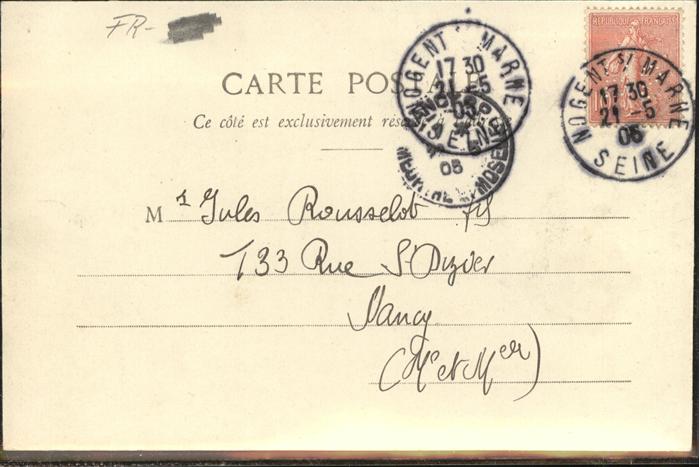 FR-
REPUBLIQUE FRANÇAISE
NOGENT S/ MARNE
17 30
21 -5
05
SEINE
NOGENT S/ MARNE
17 30
21 -5
05
SEINE
CARTE POSTALE
Ce côté est exclusivement réservé à
05
Mr Jules Rousselot fils
133 Rue St Dizier
Nancy
(Mthe et Melle)